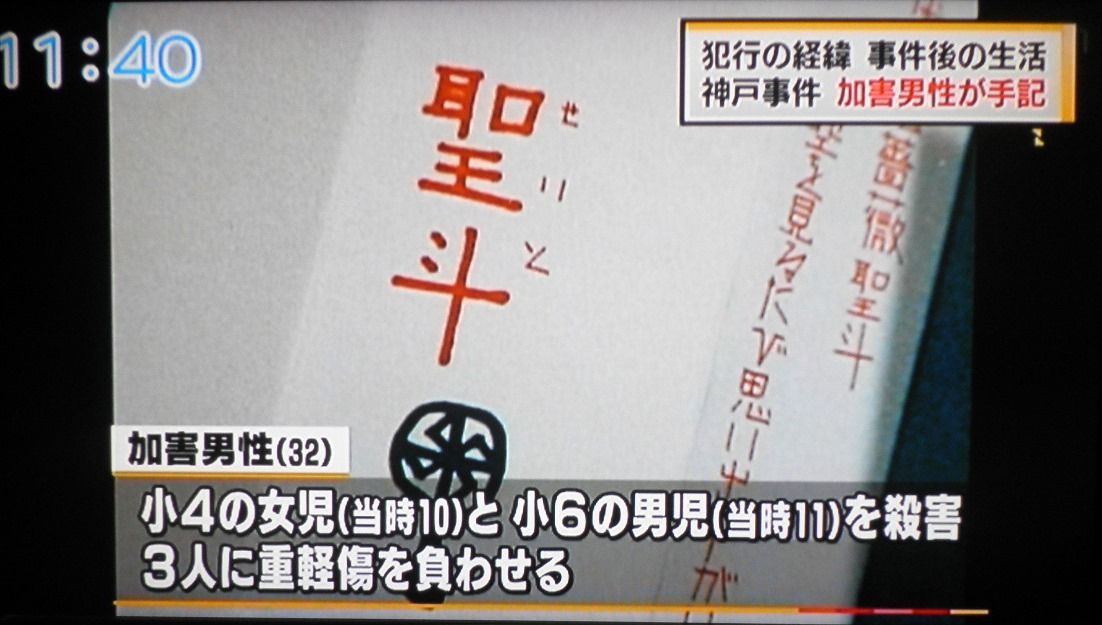 11:40
犯行の経緯 事件後の生活
神戸事件 加害男性が手記
聖斗
せいと
薔薇 聖斗
を見るたび思い出す
が
加害男性(32)
小4の女児(当時10)と 小6の男児(当時11)を殺害
3人に重軽傷を負わせる